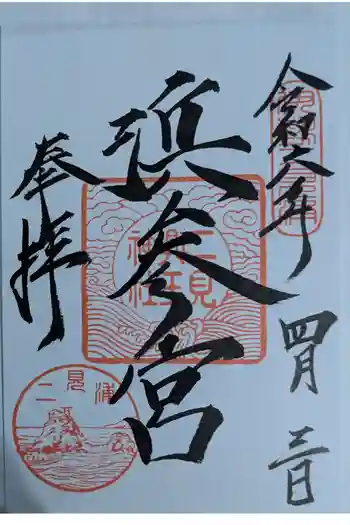 令和六年
四月三日
濵参宮
二見興玉神社
奉拝
二見浦